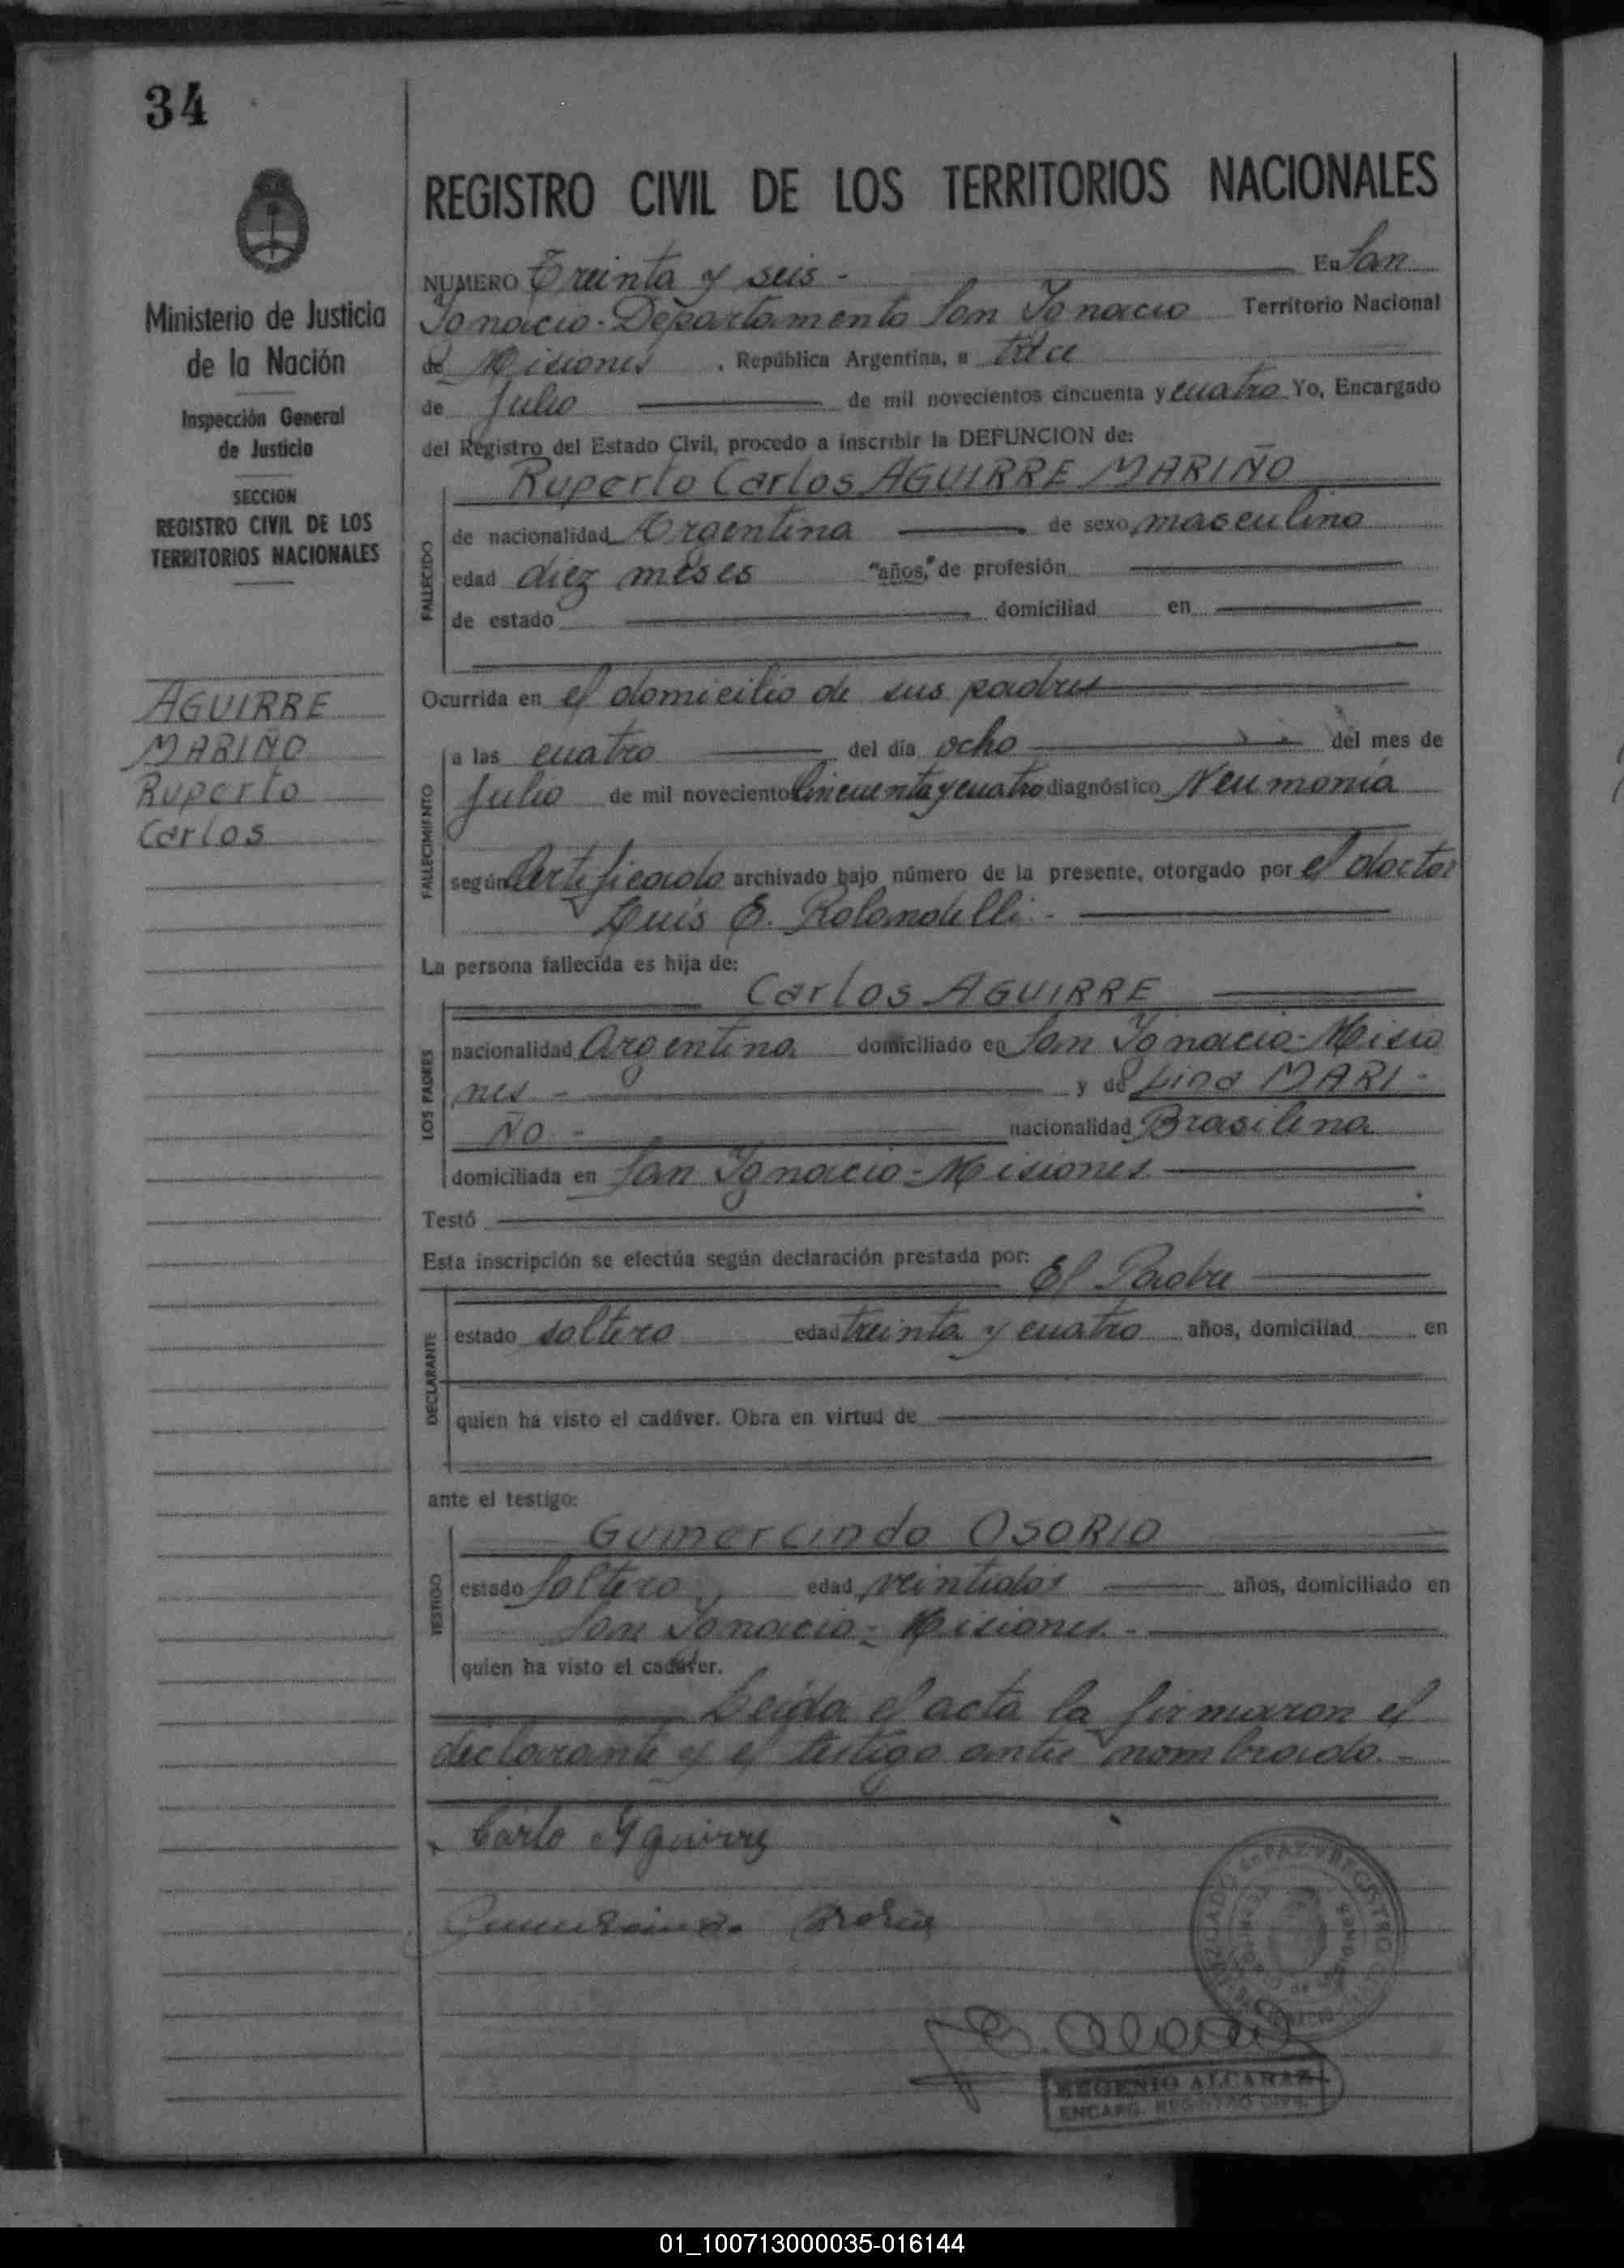 34
REGISTRO CIVIL DE LOS TERRITORIOS NACIONALES
Ministerio de Justicia
de la Nación
Inspección General
de Justicia
SECCION
REGISTRO CIVIL DE LOS
TERRITORIOS NACIONALES
AGUIRRE
MARIÑO
Ruperto
Carlos
NUMERO Treinta y seis - En San
Ignacio - Departamento San Ignacio Territorio Nacional
de Misiones , República Argentina, a
de Julio de mil novecientos cincuenta y cuatro Yo, Encargado
del Registro del Estado Civil, procedo a inscribir la DEFUNCION de:
Ruperto Carlos AGUIRRE MARIÑO
FALLECIDO
de nacionalidad Argentina de sexo masculino
edad diez meses "años," de profesión
de estado domiciliad en
Ocurrida en el domicilio de sus padres
FALLECIMIENTO
a las cuatro del día ocho del mes de
Julio de mil novecientos cincuenta y cuatro diagnóstico Neumonía
según Certificado archivado bajo número de la presente, otorgado por el doctor
Luís E. Rolandelli -
La persona fallecida es hija de:
Carlos AGUIRRE
LOS PADRES
nacionalidad Argentina domiciliado en San Ignacio - Misio
nes - y de Lina MARI -
ÑO - nacionalidad Brasilena
domiciliada en San Ignacio - Misiones
Testó
Esta inscripción se efectúa según declaración prestada por:
El Padre
DECLARANTE
estado soltero edad treinta y cuatro años, domiciliad en
quien ha visto el cadáver. Obra en virtud de
ante el testigo:
Gumercindo OSORIO
TESTIGO
estado Soltero edad veintidos años, domiciliado en
San Ignacio - Misiones. -
quien ha visto el cadáver.
Leída el acta la firmaron el
declarante y el testigo antes nombrado. -
Carlo Aguirre
Gumercindo Osorio
E. Alcaraz
EUGENIO ALCARAZ
ENCARG. REGISTRO CIVIL
01_100713000035-016144